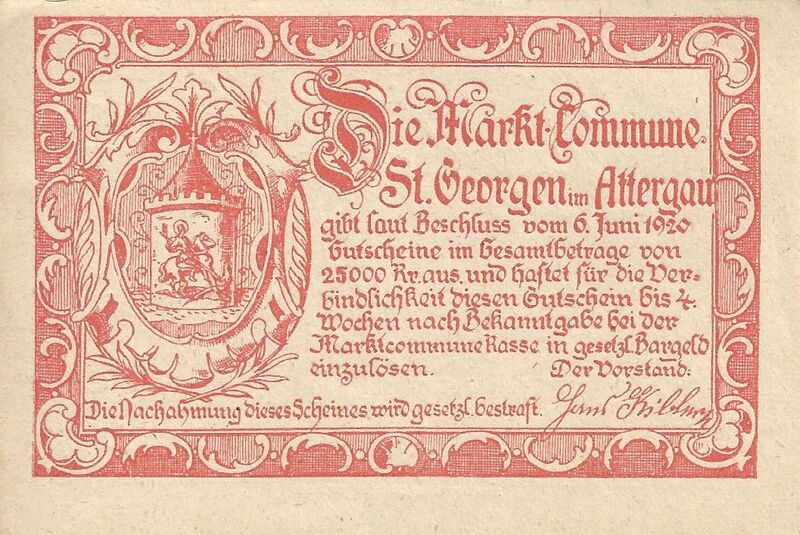 Die Markt-Commune
St. Georgen im Attergau
gibt laut Beschluss vom 6. Juni 1920
Gutscheine im Gesamtbetrage von
25000 Kr. aus, und haftet für die Ver-
bindlichkeit diesen Gutschein bis 4
Wochen nach Bekanntgabe bei der
Marktcommune Kasse in gesetzl. Bargeld
einzulösen. Der Vorstand:
Die Nachahmung dieses Scheines wird gesetzl. bestraft. Hans